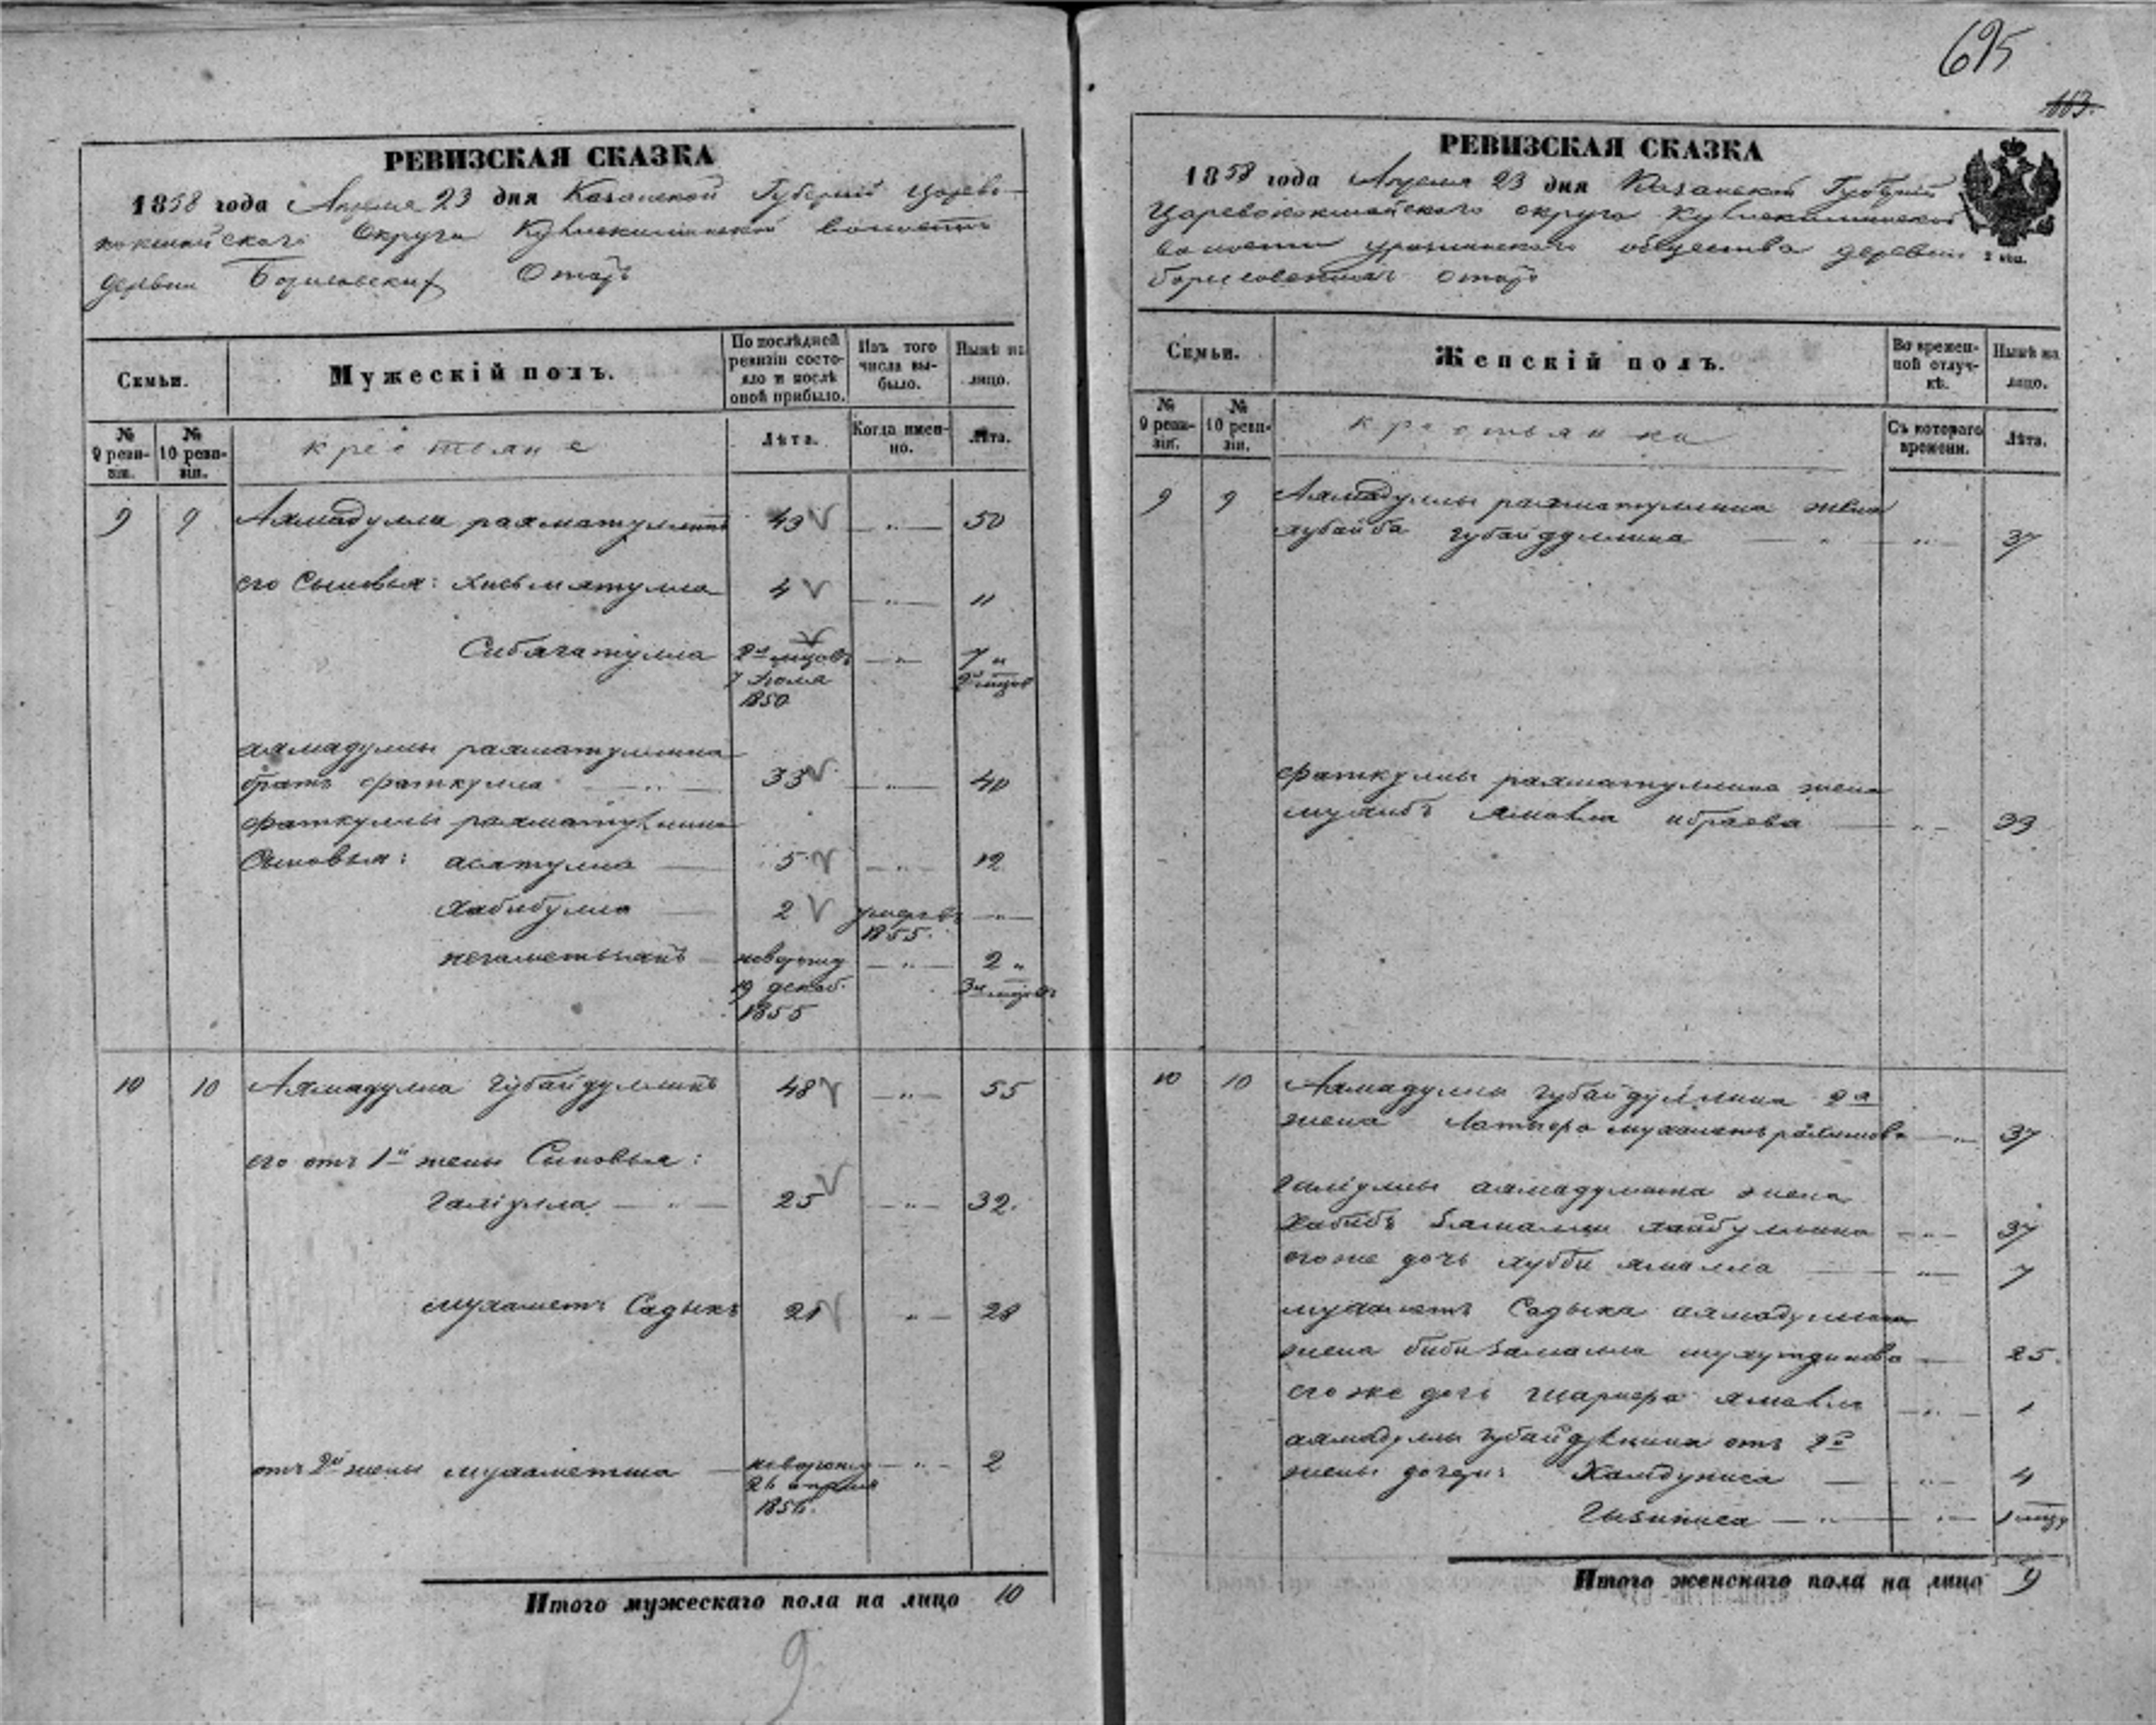 695
113
РЕВИЗСКАЯ СКАЗКА
1858 года Апреля 23 дня Казанской Губернiи Царево
кокшайскаго Округа волости
деревни Борисовских Отаръ
Семьи.
Мужескiй полъ.
По послѣдней ревизiи состояло и послѣ оной прибыло.
Изъ того числа выбыло.
Нынѣ на лицо.
№ 9 ревизiи.
№ 10 ревизiи.
крестьяне
Лѣта.
Когда именно.
Лѣта.
9 9 Ахмадулла рахматуллинъ 43 50
его Сыновья: хисьмятулла 4 11
Сибагатулла 2 7
7 2
1850
ахмадуллы рахматуллина
братъ фаткулла 33 40
фаткуллы рахматуллина
Сыновья: асатулла 5 12
хабибулла 2 умеръ въ
1855.
негаметьзянъ новорожд 2
19 декаб. 3
1855
10 10 Ахмадулла Губайдуллинъ 48 55
его отъ 1й жены Сыновья:
Галiулла 25 32.
мухаметъ Садыкъ 21 28
отъ 2й жены мухаметша новорожд 2
26 апреля
1856.
Итого мужескаго пола на лицо 10
9
РЕВИЗСКАЯ СКАЗКА
1858 года Апреля 23 дня Казанской Губернiи
Царевококшайскаго округа
волости общества деревни
борисовскихъ отаръ
Семьи.
Женскiй полъ.
Во временной отлучкѣ.
Нынѣ на лицо.
№ 9 ревизiи.
№ 10 ревизiи.
крестьянки
Съ котораго времени.
Лѣта.
9 9 Ахмадуллы рахматуллина жена
хубайба губайдуллина 37
фаткуллы рахматуллина жена
ибраева 33
10 10 Ахмадуллы губайдуллина 2я
жена 37
галiуллы ахмадуллина жена
хайбуллина 37
его же дочь 7
мухаметъ Садыка ахмадуллина
жена биби 25.
его же дочь 1
ахмадуллы губайдуллина отъ 2й
жены дочери: 4
1
Итого женскаго пола на лицо 9